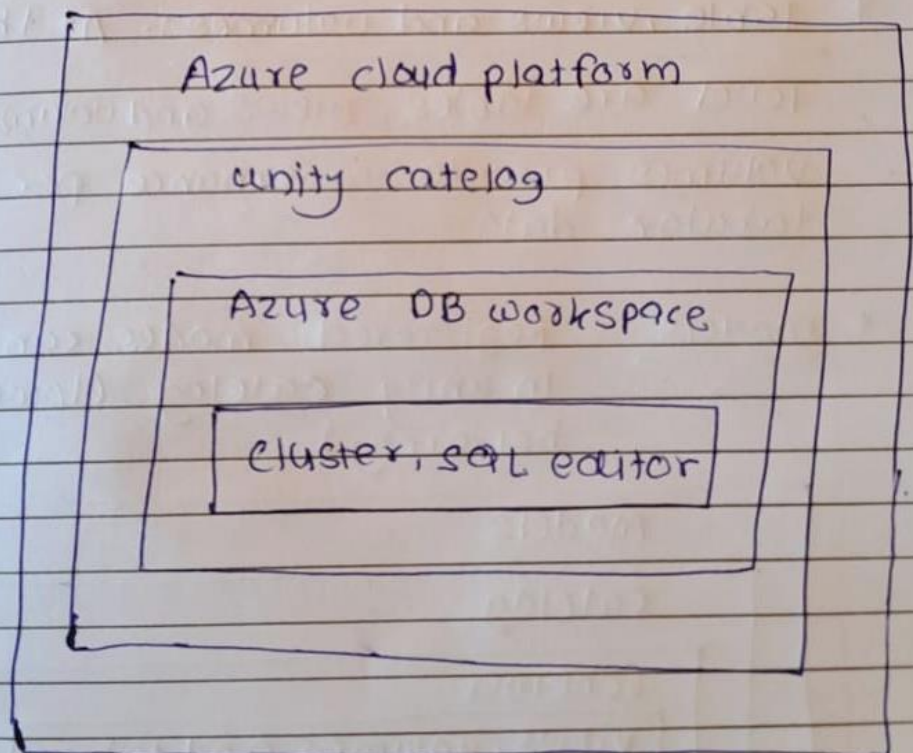 Azure cloud platform
unity catelog
Azure DB workspace
cluster, SQL editor